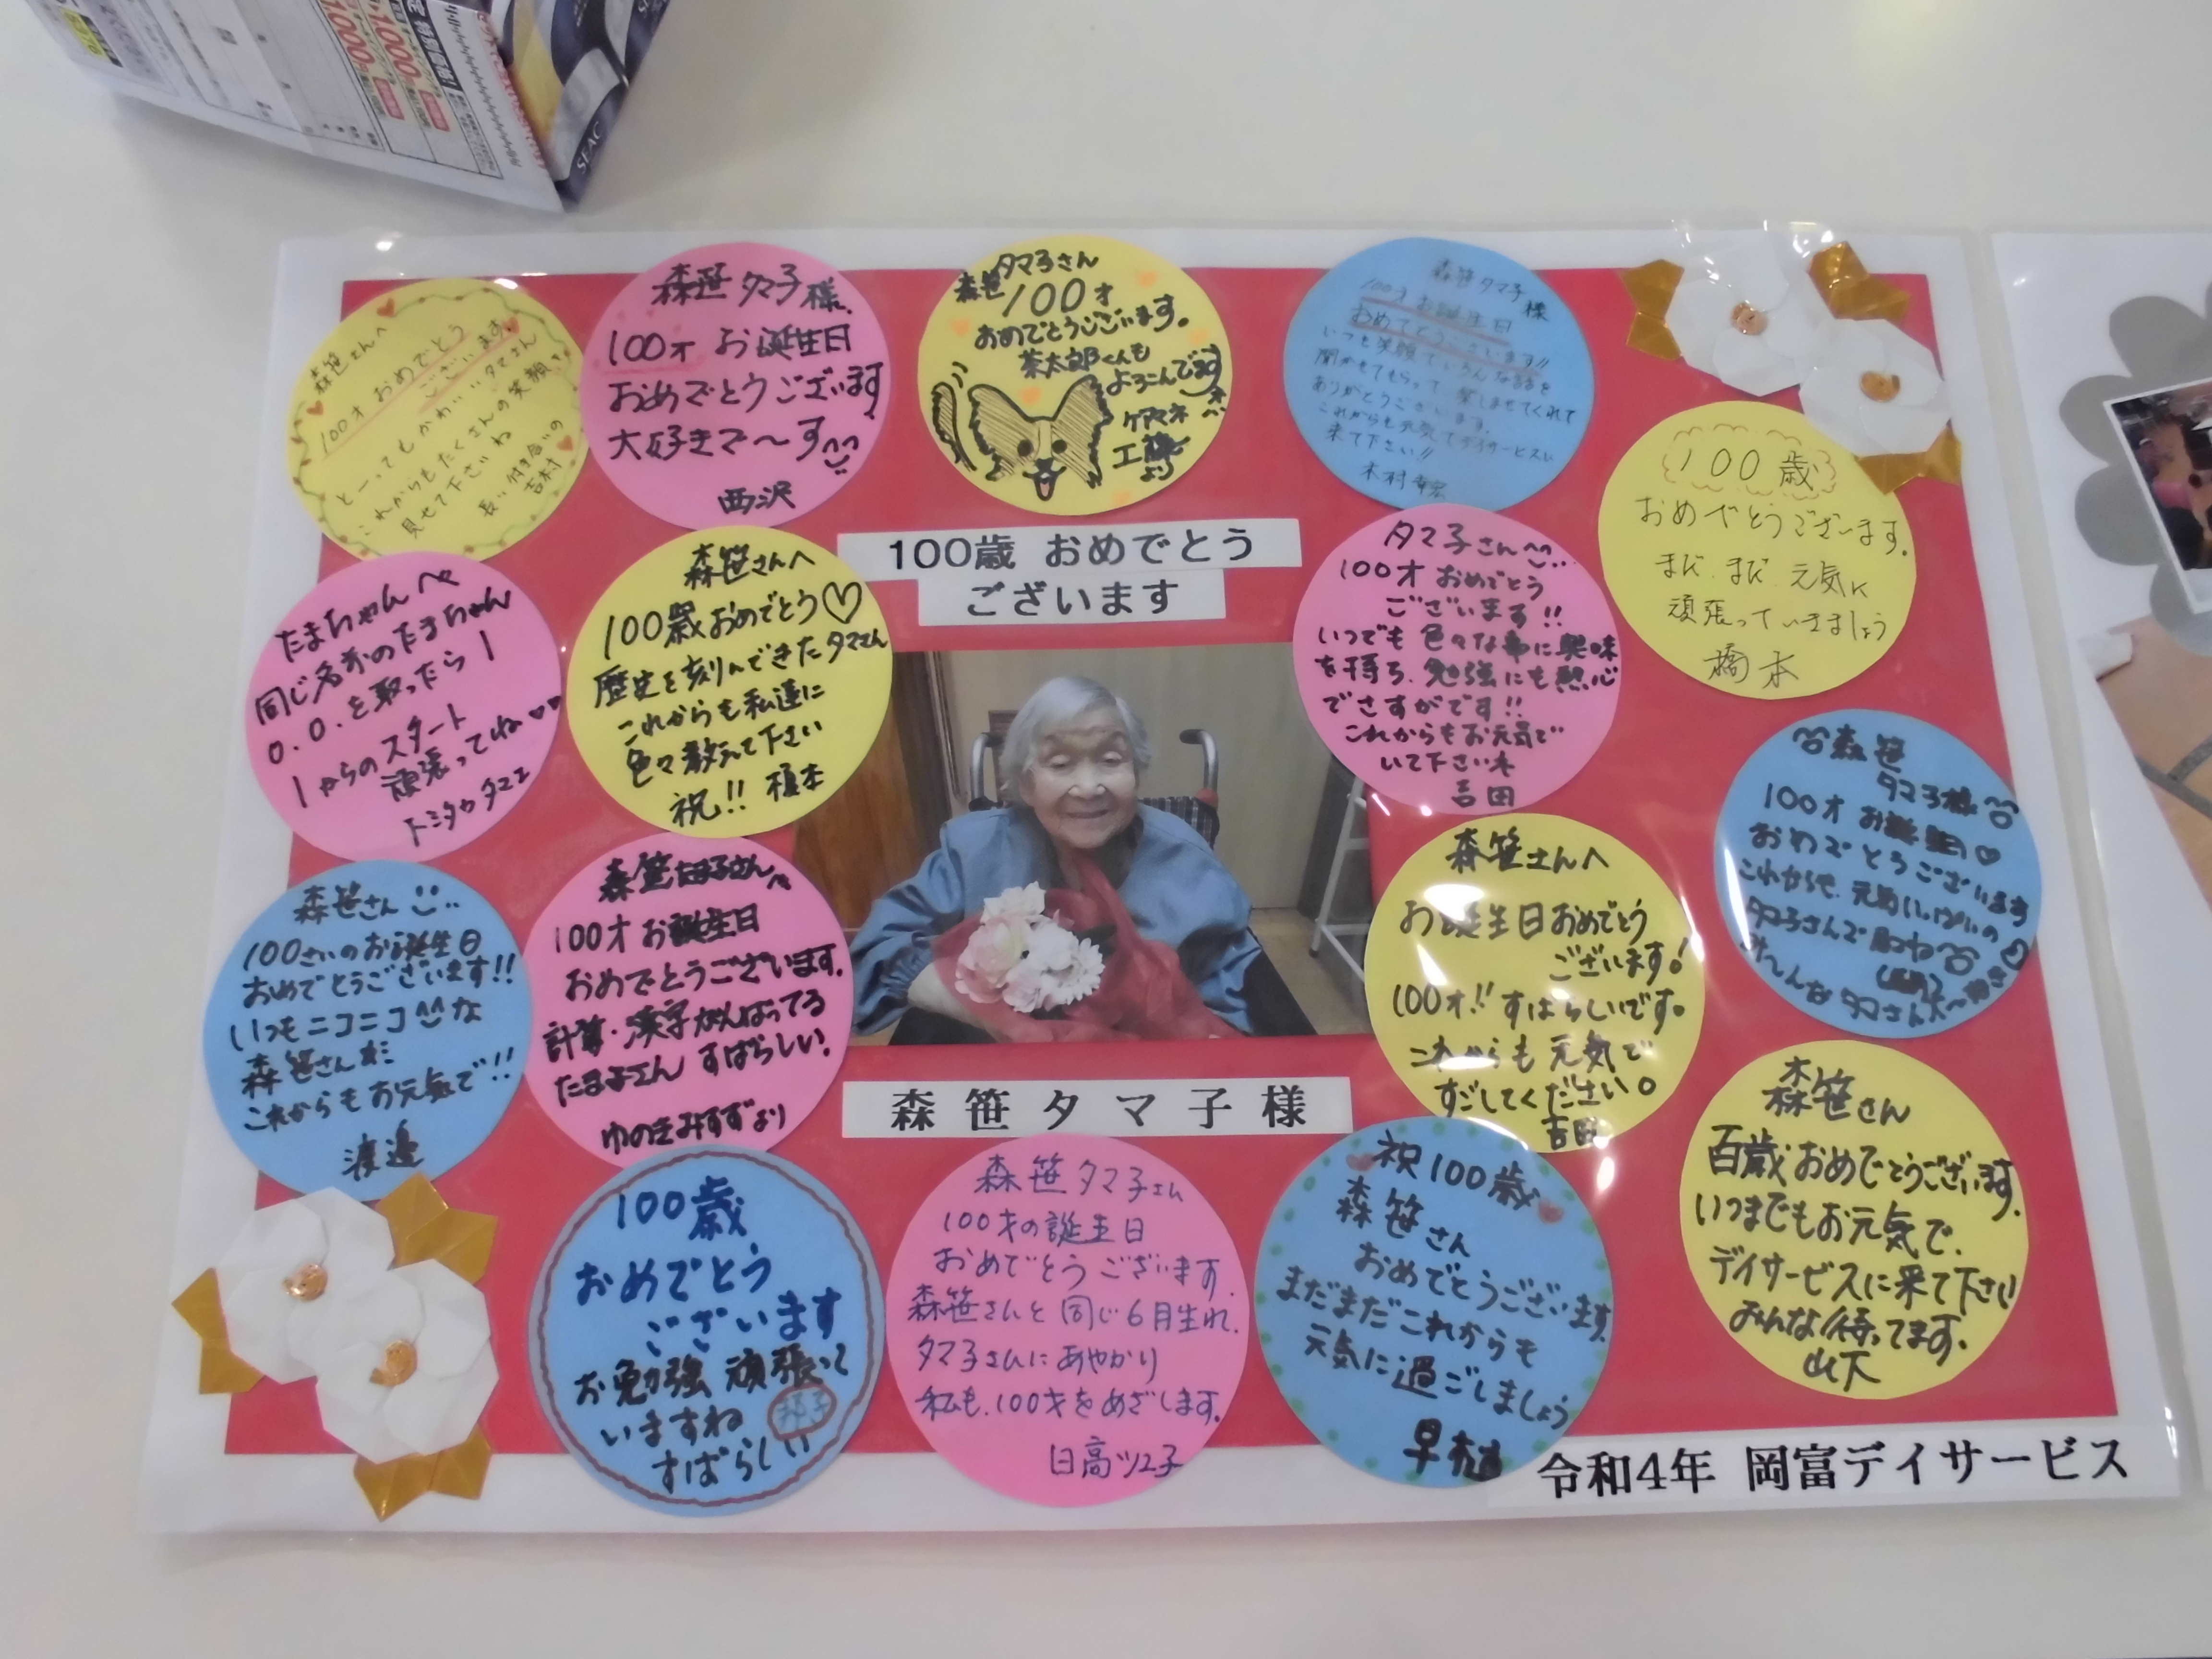 1,000
1,000
SEAC
森笹さんへ
100才 おめでとう
ございます。
とーってもかわいいタマさん
これからもたくさんの笑顔
見せて下さいね
長い付き合いの
吉村
森笹 タマ子 様
100才 お誕生日
おめでとうございます
大好きで〜す
西沢
森笹タマ子さん
100才
おめでとうございます。
茶太郎くんも
よろこんでます
ケアマネ
工藤
より
森笹タマ子様
100才お誕生日
おめでとうございます!!
いつも笑顔でいろんな話を
聞かせてもらって 楽しませてくれて
ありがとうございます。
これからも元気でデイサービスに
来て下さい!!
木村幸宏
100歳
おめでとうございます。
まだ、まだ、元気に
頑張っていきましょう
橋本
100歳 おめでとう
ございます
たまちゃんへ
同じ名前のたまちゃん
0.0.を取ったら1
1からのスタート
頑張ってね
トミタカタマエ
森笹さんへ
100歳おめでとう♡
歴史を刻んできたタマさん
これからも私達に
色々教えて下さい
祝!! 植本
タマ子さん
100才 おめでとう
ございます!!
いつでも 色々な事に興味
を持ち、勉強にも熱心
でさすがです!!
これからもお元気で
いて下さいネ
吉田
森笹
タマ子様
100才 お誕生日♡
おめでとうございます
これからも、元気いっぱいの
タマ子さんで
み〜んな タマさん大〜好き♡
森笹さん
100さいのお誕生日
おめでとうございます!!
いつもニコニコな
森笹さんだ
これからもお元気で!!
渡邉
森笹たま子さんへ
100才お誕生日
おめでとうございます。
計算・漢字がんばってる
たまよさん すばらしい。
ゆのきみすずより
森笹さんへ
お誕生日おめでとう
ございます!
100才!! すばらしいです。
これからも 元気で
すごしてください。
吉田
森笹さん
百歳おめでとうございます。
いつまでもお元気で、
デイサービスに来て下さい
みんな待ってます。
山下
森笹タマ子様
100歳
おめでとう
ございます
お勉強 頑張って
いますね
すばらしい
邦子
森笹タマ子さん
100才の誕生日
おめでとうございます。
森笹さんと同じ6月生れ、
タマ子さんにあやかり
私も、100才をめざします。
日高ツユ子
祝100歳
森笹さん
おめでとうございます。
まだまだこれからも
元気に過ごしましょう
令和4年 岡富デイサービス